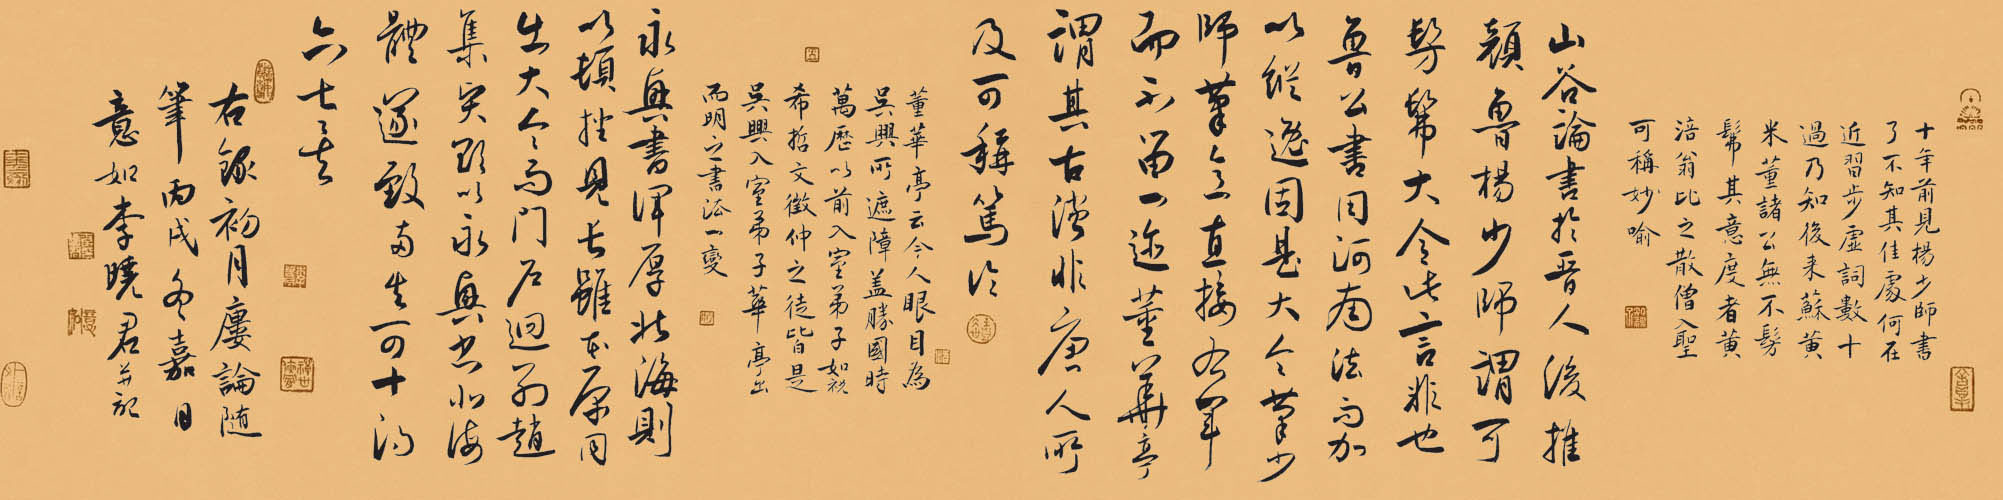 十年前見楊少師書
了不知其佳處何在
近習步虛詞數十
過乃知後來蘇黃
米董諸公無不髣
髴其意度者黃
涪翁比之散僧入聖
可稱妙喻
山谷論書於晉人後推
顏魯楊少師謂可
髣髴大令此言非也
魯公書同河南法而加
以縱逸固是大令筆少
師筆意直接右軍
而不留一迹董華亭
謂其古淡非唐人所
及可稱篤論
董華亭云今人眼目為
吳興所遮障蓋勝國時
萬歷以前入室弟子如祝
希哲文徵仲之徒皆是
吳興入室弟子華亭出
而明之書法一變
永興書渾厚北海則
以頓挫見長雖本原同
出大令而門戶迥別趙
集以永興書北海
體遂致兩失可十得
六七矣
右錄初月廔論隨
筆丙戌冬嘉月
意如李曉君並記